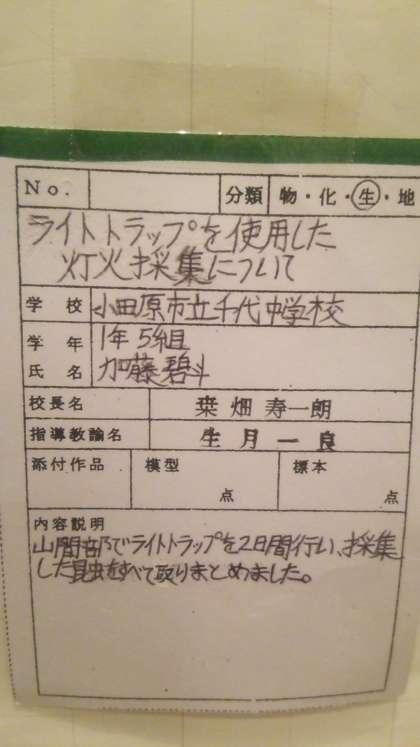 No. 分類 物・化・生・地
ライトトラップを使用した
灯火採集について
学校 小田原市立千代中学校
学年 1年5組
氏名 加藤碧斗
校長名 桒畑寿一朗
指導教諭名 生月一良
添付作品 模型 点 標本 点
内容説明
山間部でライトトラップを2日間行い、採集
した昆虫をすべて取りまとめました。